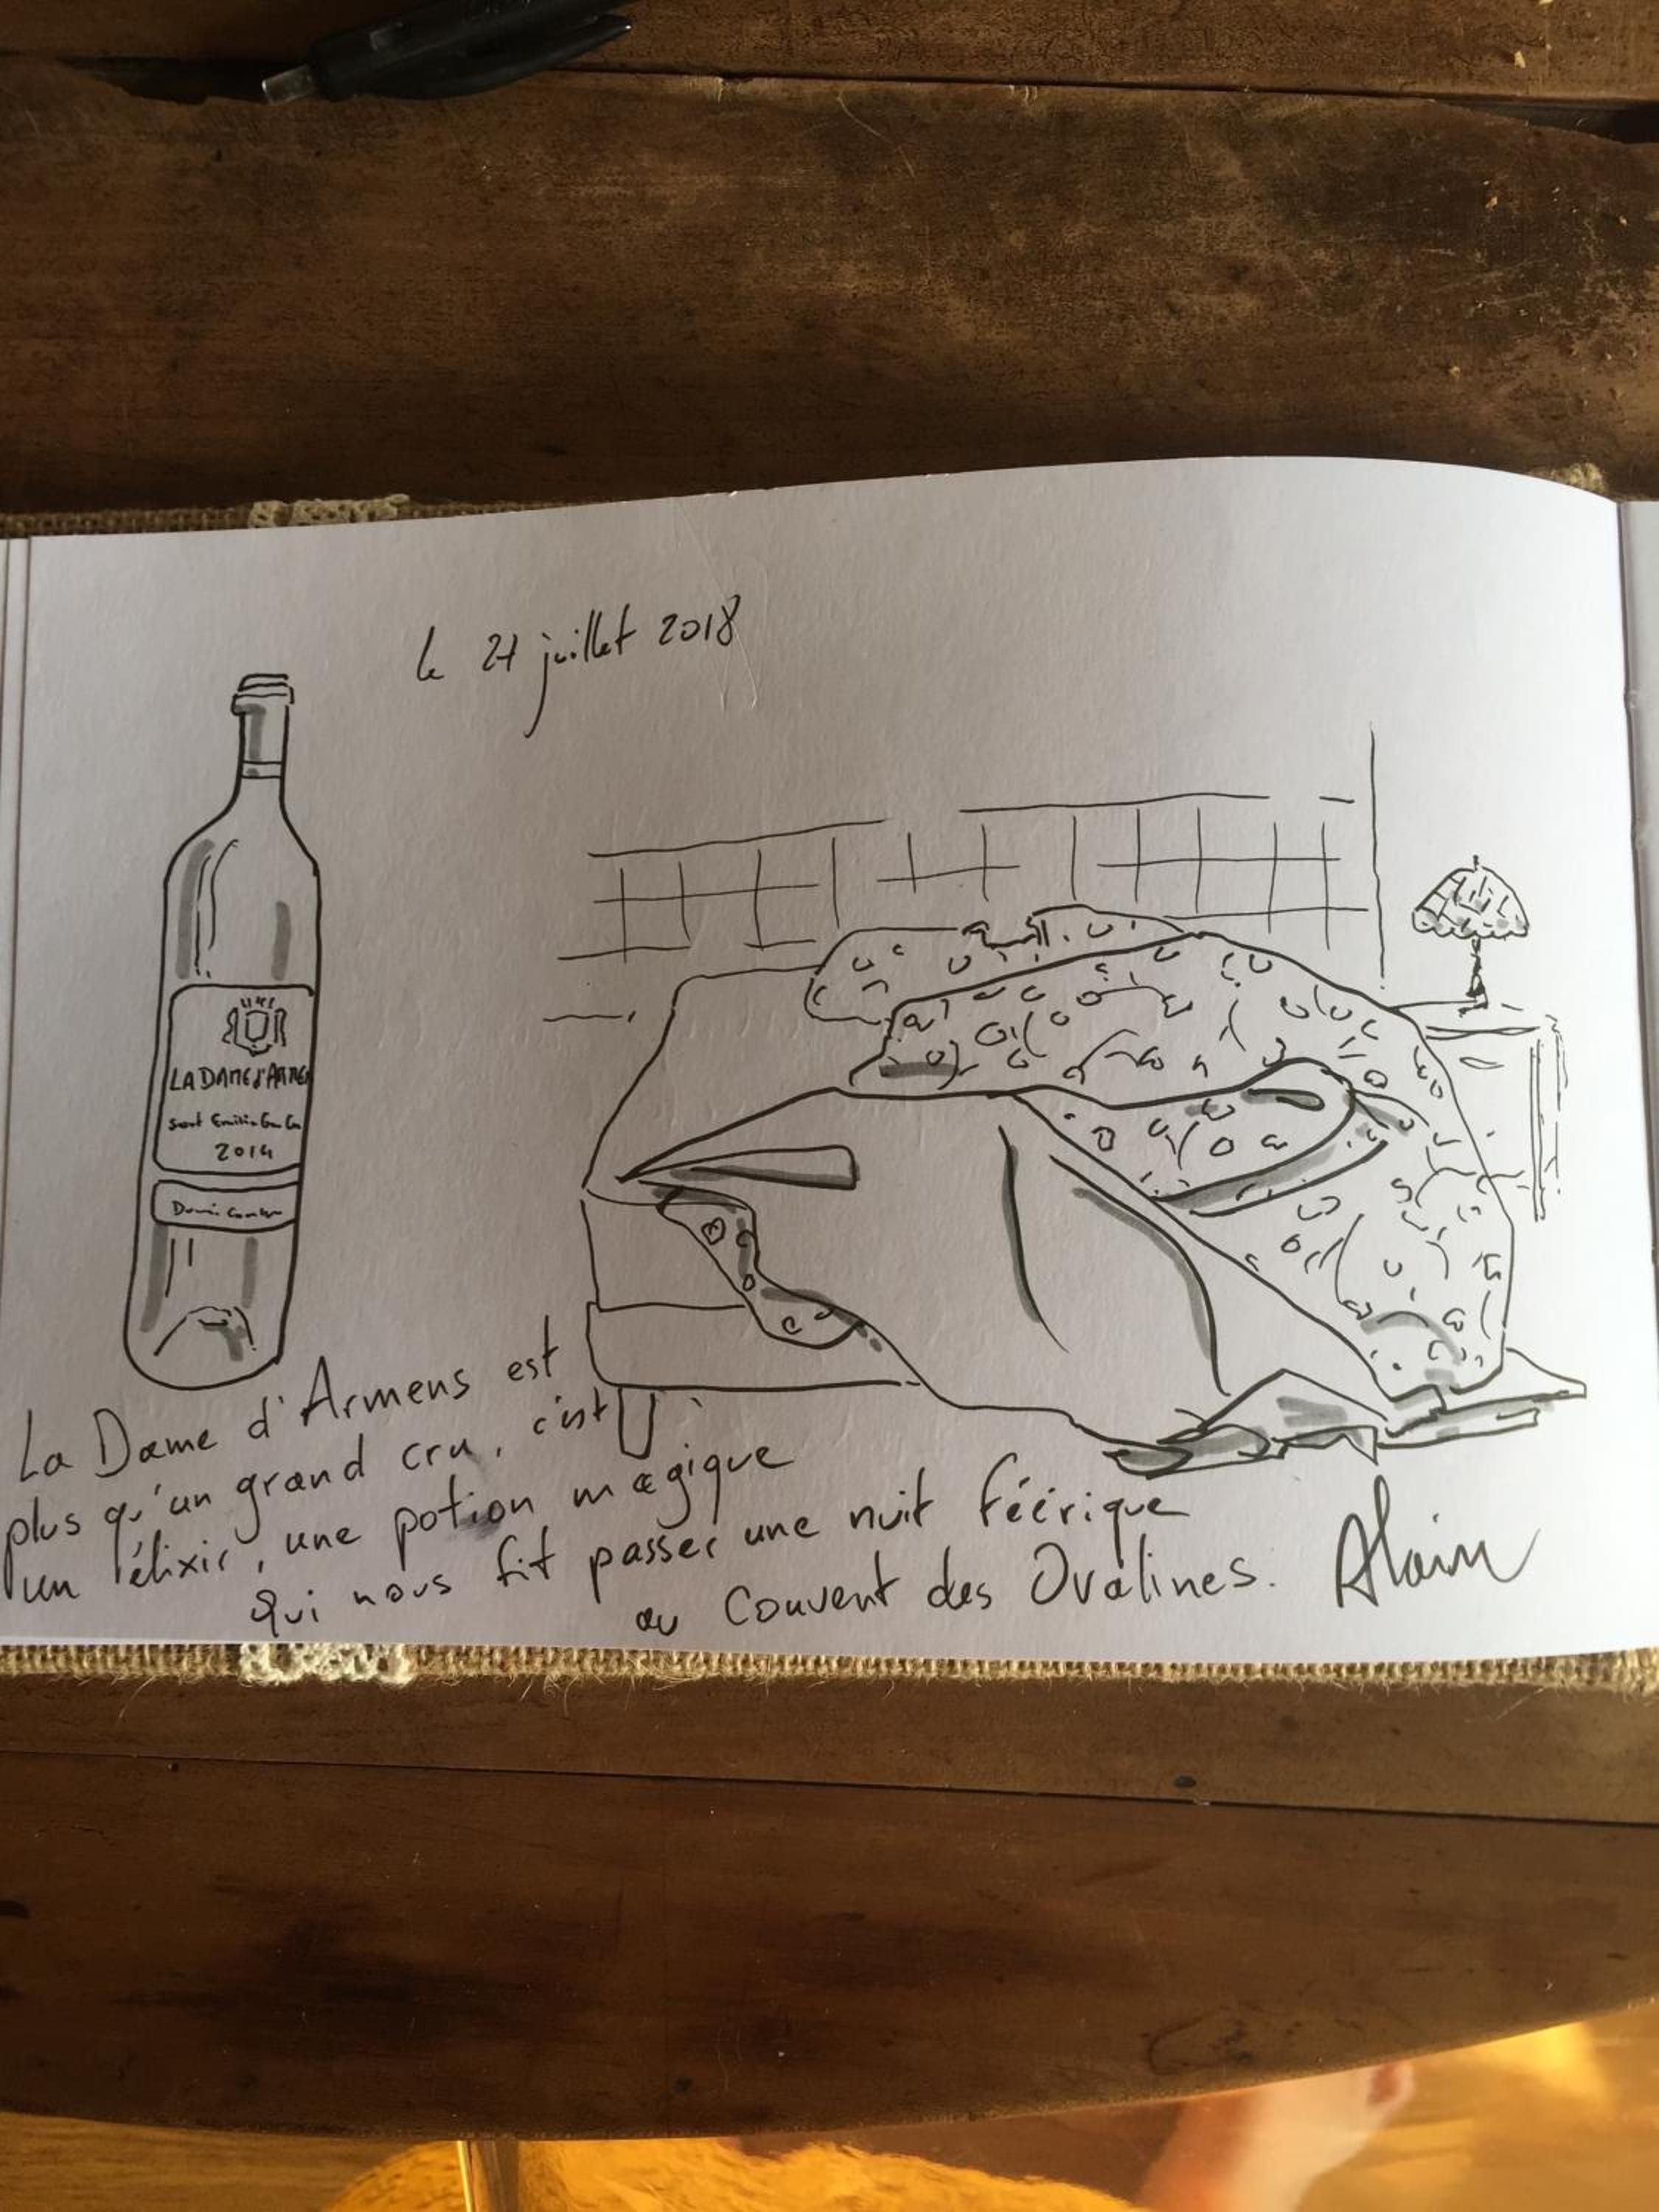 le 21 juillet 2018
LA DAME d'ARMEN
2014
La Dame d'Armens est
plus qu'un grand cru, c'est
un élixir, une potion magique
qui nous fit passer une nuit féérique
au Couvent des Ovalines.
Alain